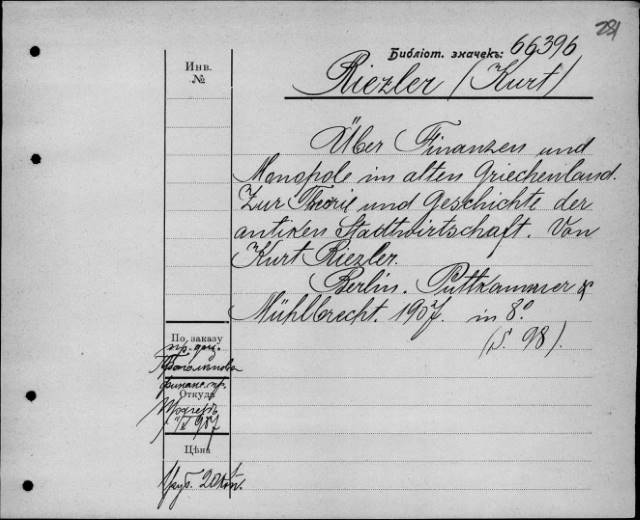 281
Библіот. значекъ: 66396
Инв.
№
Riezler (Kurt)
Über Finanzen und
Monopole im alten Griechenland.
Zur Theorie und Geschichte der
antiken Stadtwirtschaft. Von
Kurt Riezler.
Berlin. Puttkammer &
Mühlbrecht. 1907. in 8º
(S. 98).
По заказу
пр. доц.
финанс. пр.
Откуда
Цѣна
1 руб. 20 коп.